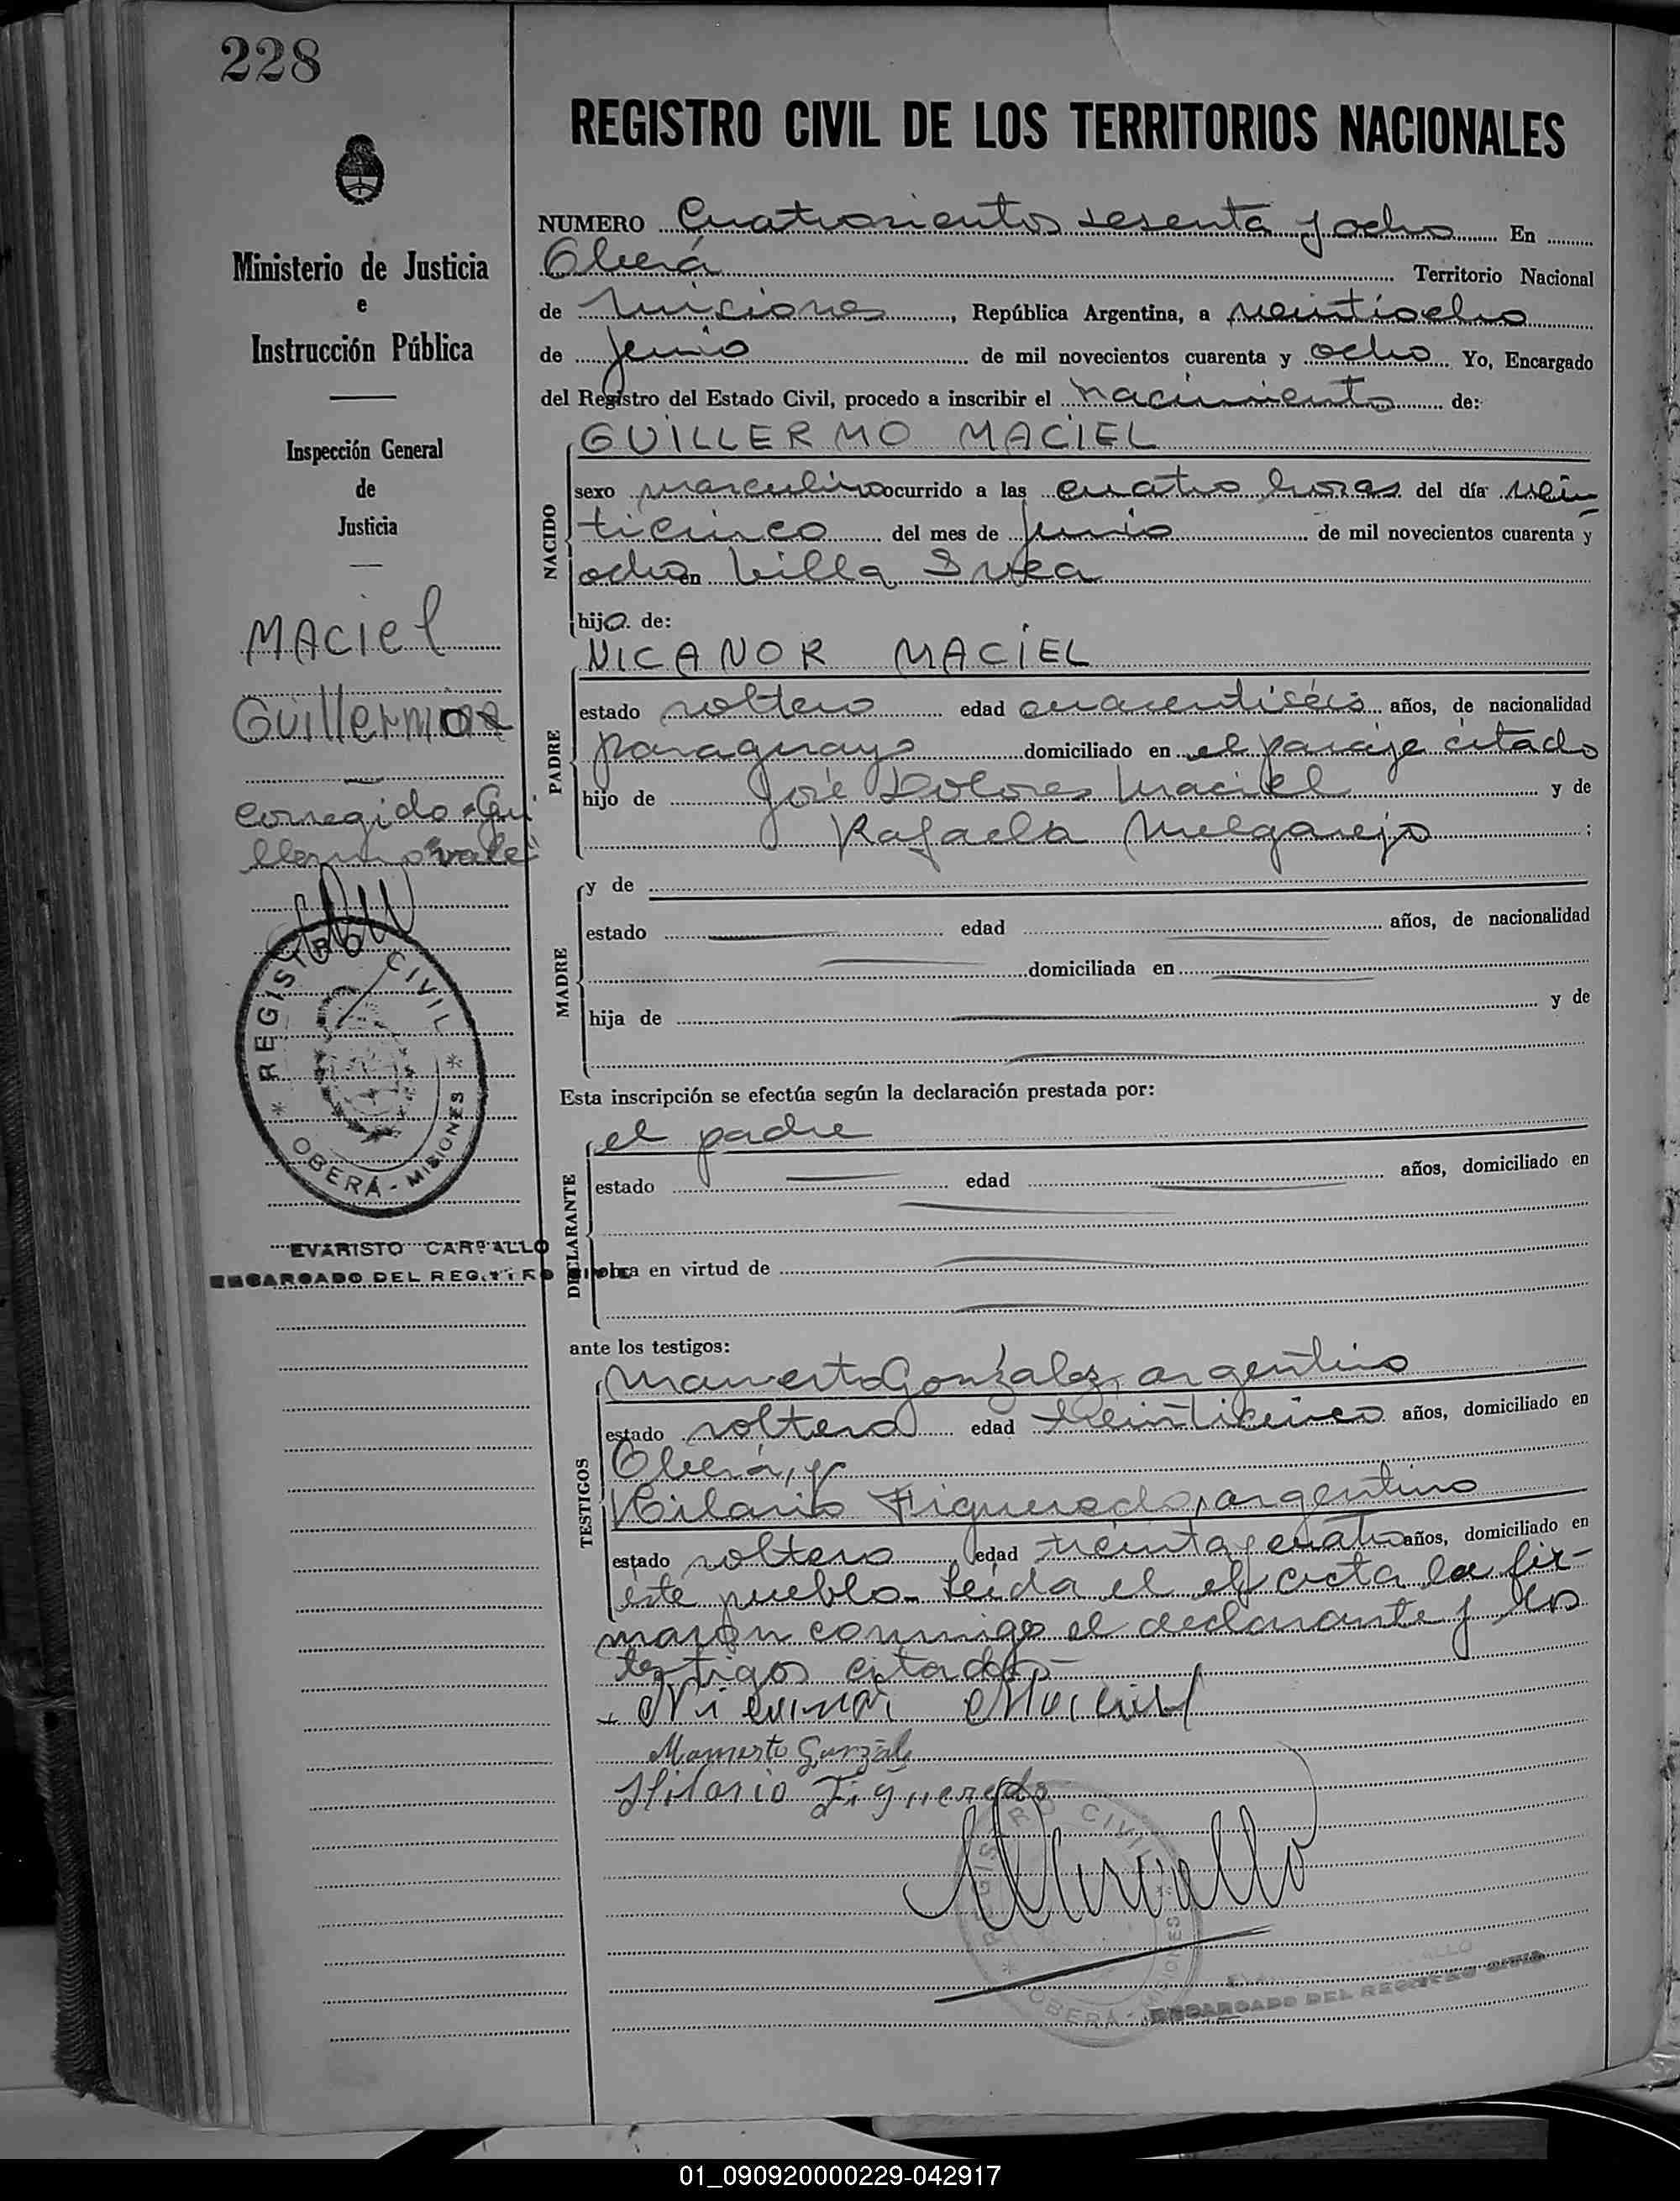 228
REGISTRO CIVIL DE LOS TERRITORIOS NACIONALES
Ministerio de Justicia
e
Instrucción Pública
Inspección General
de
Justicia
MACIEL
Guillermo
corregido "Gui
llermo" vale
REGISTRO CIVIL
OBERÁ - MISIONES
EVARISTO CARBALLO
ENCARGADO DEL REGISTRO CIVIL
NUMERO Cuatrocientos sesenta y ocho En
Oberá Territorio Nacional
de Misiones, República Argentina, a veintiocho
de junio de mil novecientos cuarenta y ocho Yo, Encargado
del Registro del Estado Civil, procedo a inscribir el nacimiento de:
NACIDO
GUILLERMO MACIEL
sexo masculino ocurrido a las cuatro horas del día vein-
ticinco del mes de junio de mil novecientos cuarenta y
ocho en Villa Svea
hijo de:
PADRE
NICANOR MACIEL
estado soltero edad cuarentiséis años, de nacionalidad
paraguayo domiciliado en el paraje citado
hijo de José Dolores Maciel y de
Rafaela Melgarejo ;
MADRE
y de
estado edad años, de nacionalidad
domiciliada en
hija de y de
Esta inscripción se efectúa según la declaración prestada por:
DECLARANTE
el padre
estado edad años, domiciliado en
obra en virtud de
ante los testigos:
TESTIGOS
Mamerto González, argentino
estado soltero edad veinticinco años, domiciliado en
Oberá, y
Hilario Figueredo, argentino
estado soltero edad treinta y cuatro años, domiciliado en
este pueblo. Leída el acta la fir-
maron conmigo el declarante y los
testigos citados.-
Nicanor Maciel
Mamerto Gonzál
Hilario Figueredo
Carvallo
REGISTRO CIVIL
OBERÁ - MISIONES
ENCARGADO DEL REGISTRO CIVIL
01_090920000229-042917